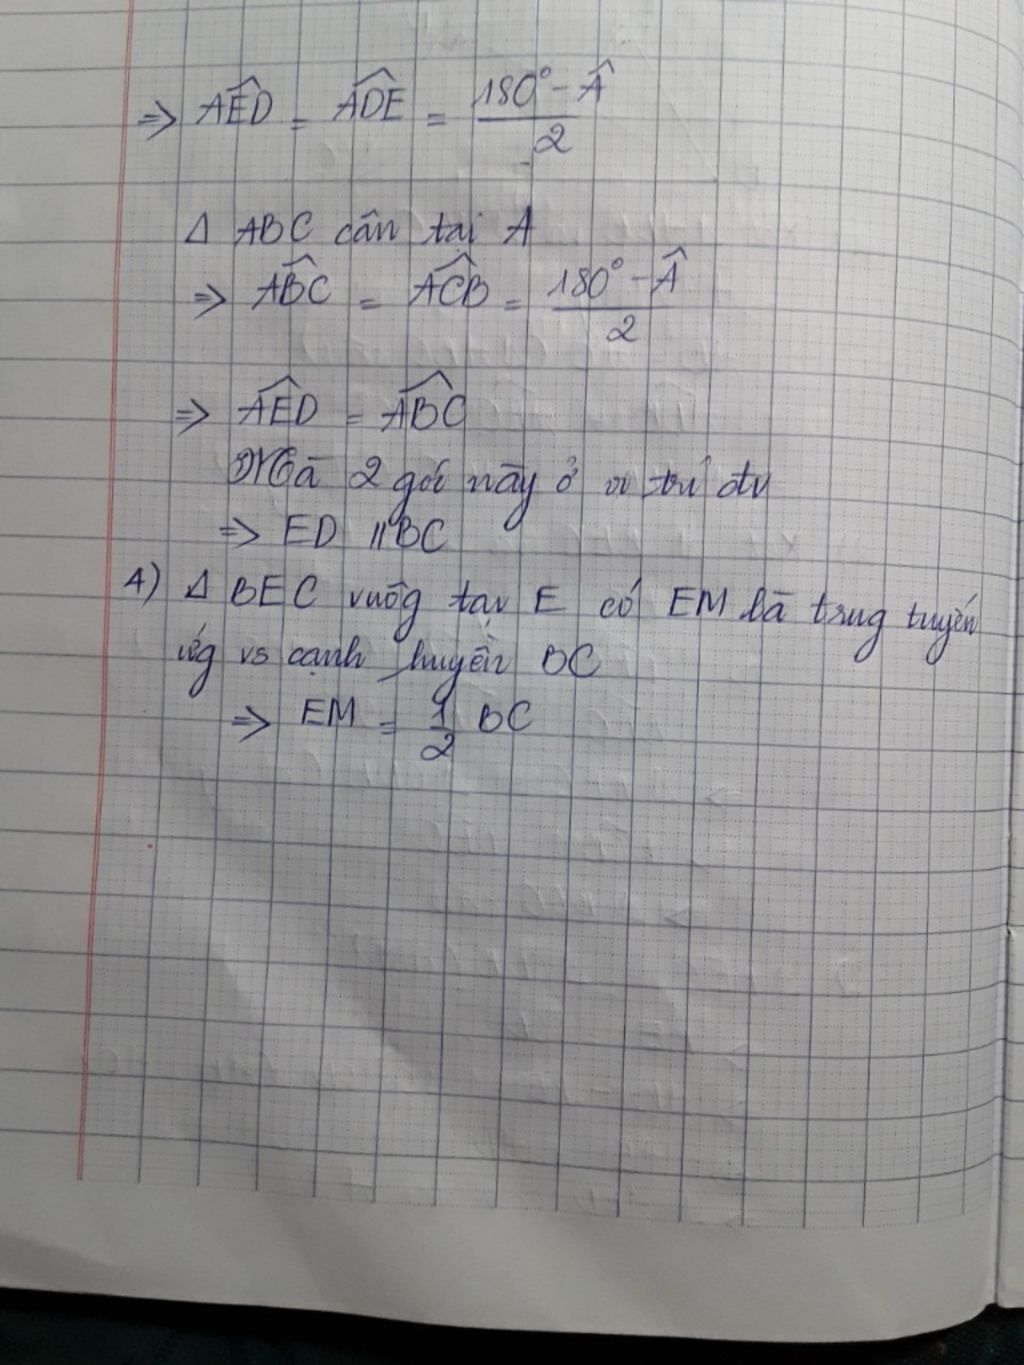 ⇒ AÊD = ADE = (180° - Â)/2
Δ ABC cân tại A
⇒ ABC = ACB = (180° - Â)/2
⇒ AED = ABC
Mà 2 góc này ở vị trí đv
⇒ ED // BC
4) Δ BEC vuôg tại E có EM là trug tuyến
ứg vs cạnh huyền BC
⇒ EM = 1/2 BC